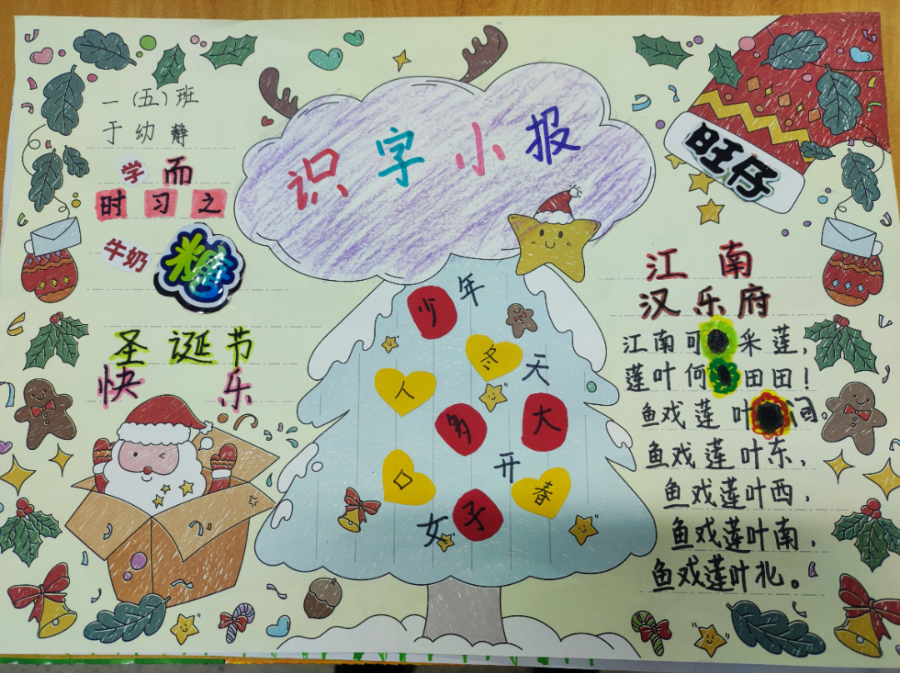 识字小报
一(五)班
于幼静
学而
时习之
牛奶
糖
圣诞节
快乐
少年
冬天
人
多大
口
开春
女子
旺仔
江南
汉乐府
江南可采莲,
莲叶何田田!
鱼戏莲叶间。
鱼戏莲叶东,
鱼戏莲叶西,
鱼戏莲叶南,
鱼戏莲叶北。